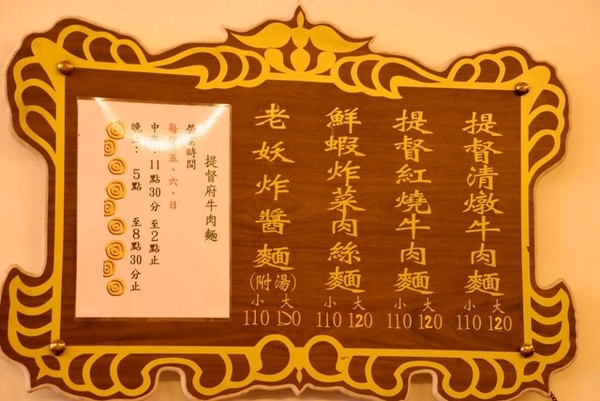 提督清燉牛肉麵
小 大
110 120
提督紅燒牛肉麵
小 大
110 120
鮮蝦炸菜肉絲麵
小 大
110 120
老妖炸醬麵
(附湯)
小 大
110
提督府牛肉麵
營業時間
每 五、六、日
中午：11點30分 至2點止
晚上：5點 至8點30分止